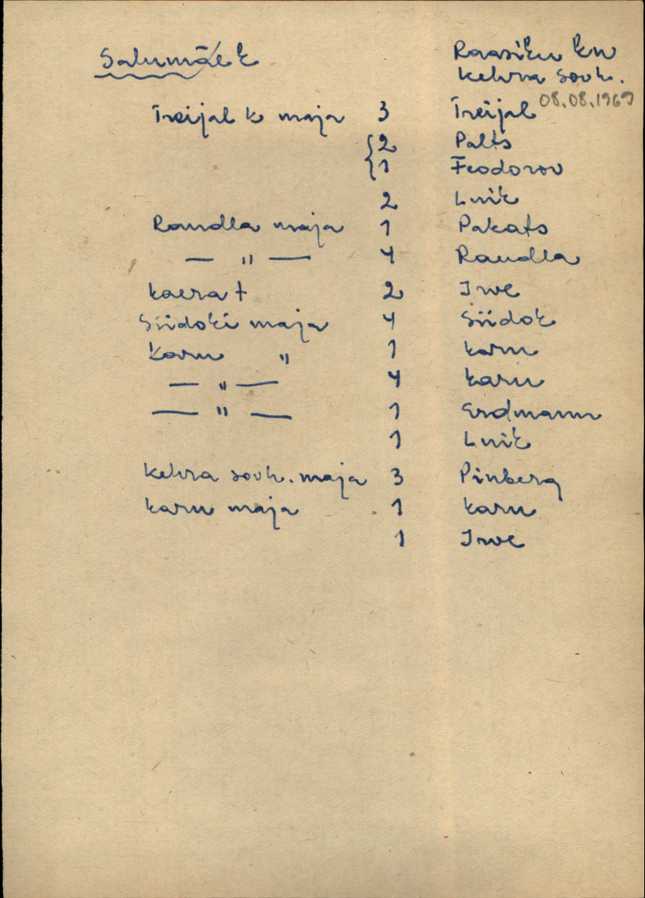 Salumäe k Raasiku kn
Kehra sovh.
08.08.1969
Treijal k maja 3 Treijal
2 Palts
1 Feodorov
2 Luik
Raudla maja 1 Pakats
— " — 4 Raudla
Kaera t 2 Irve
Siidoki maja 4 Siidok
Karu " 1 Karu
— " — 4 Karu
— " — 1 Erdmann
1 Luik
Kehra sovh. maja 3 Pinberg
Karu maja 1 Karu
1 Irve